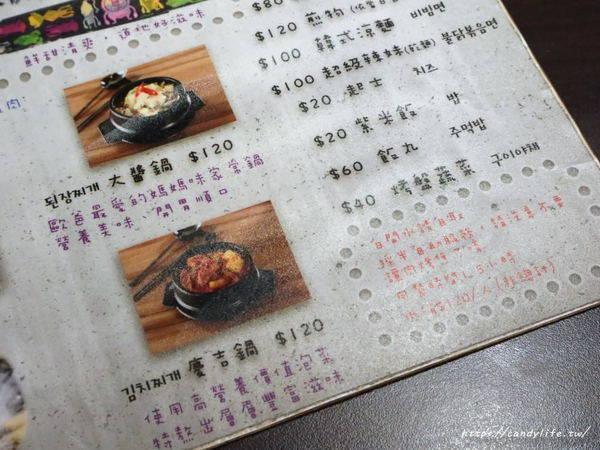 鮮甜清爽，道地好滋味
된장찌개 大醬鍋 $120
歐爸最愛的媽媽味家常鍋
營養美味 開胃順口
김치찌개 慶吉鍋 $120
使用高營養價值泡菜
特熬出層層豐富滋味
$80
$120
비빔면
$100 韓式涼麵
$100 超級辣妹(乾麵) 불닭볶음면
$20 起士 치즈
$20 紫米飯 밥
$60 飯丸 주먹밥
$40 烤盤蔬菜 구이야채
用餐時間1.5小時
https://candylife.tw/